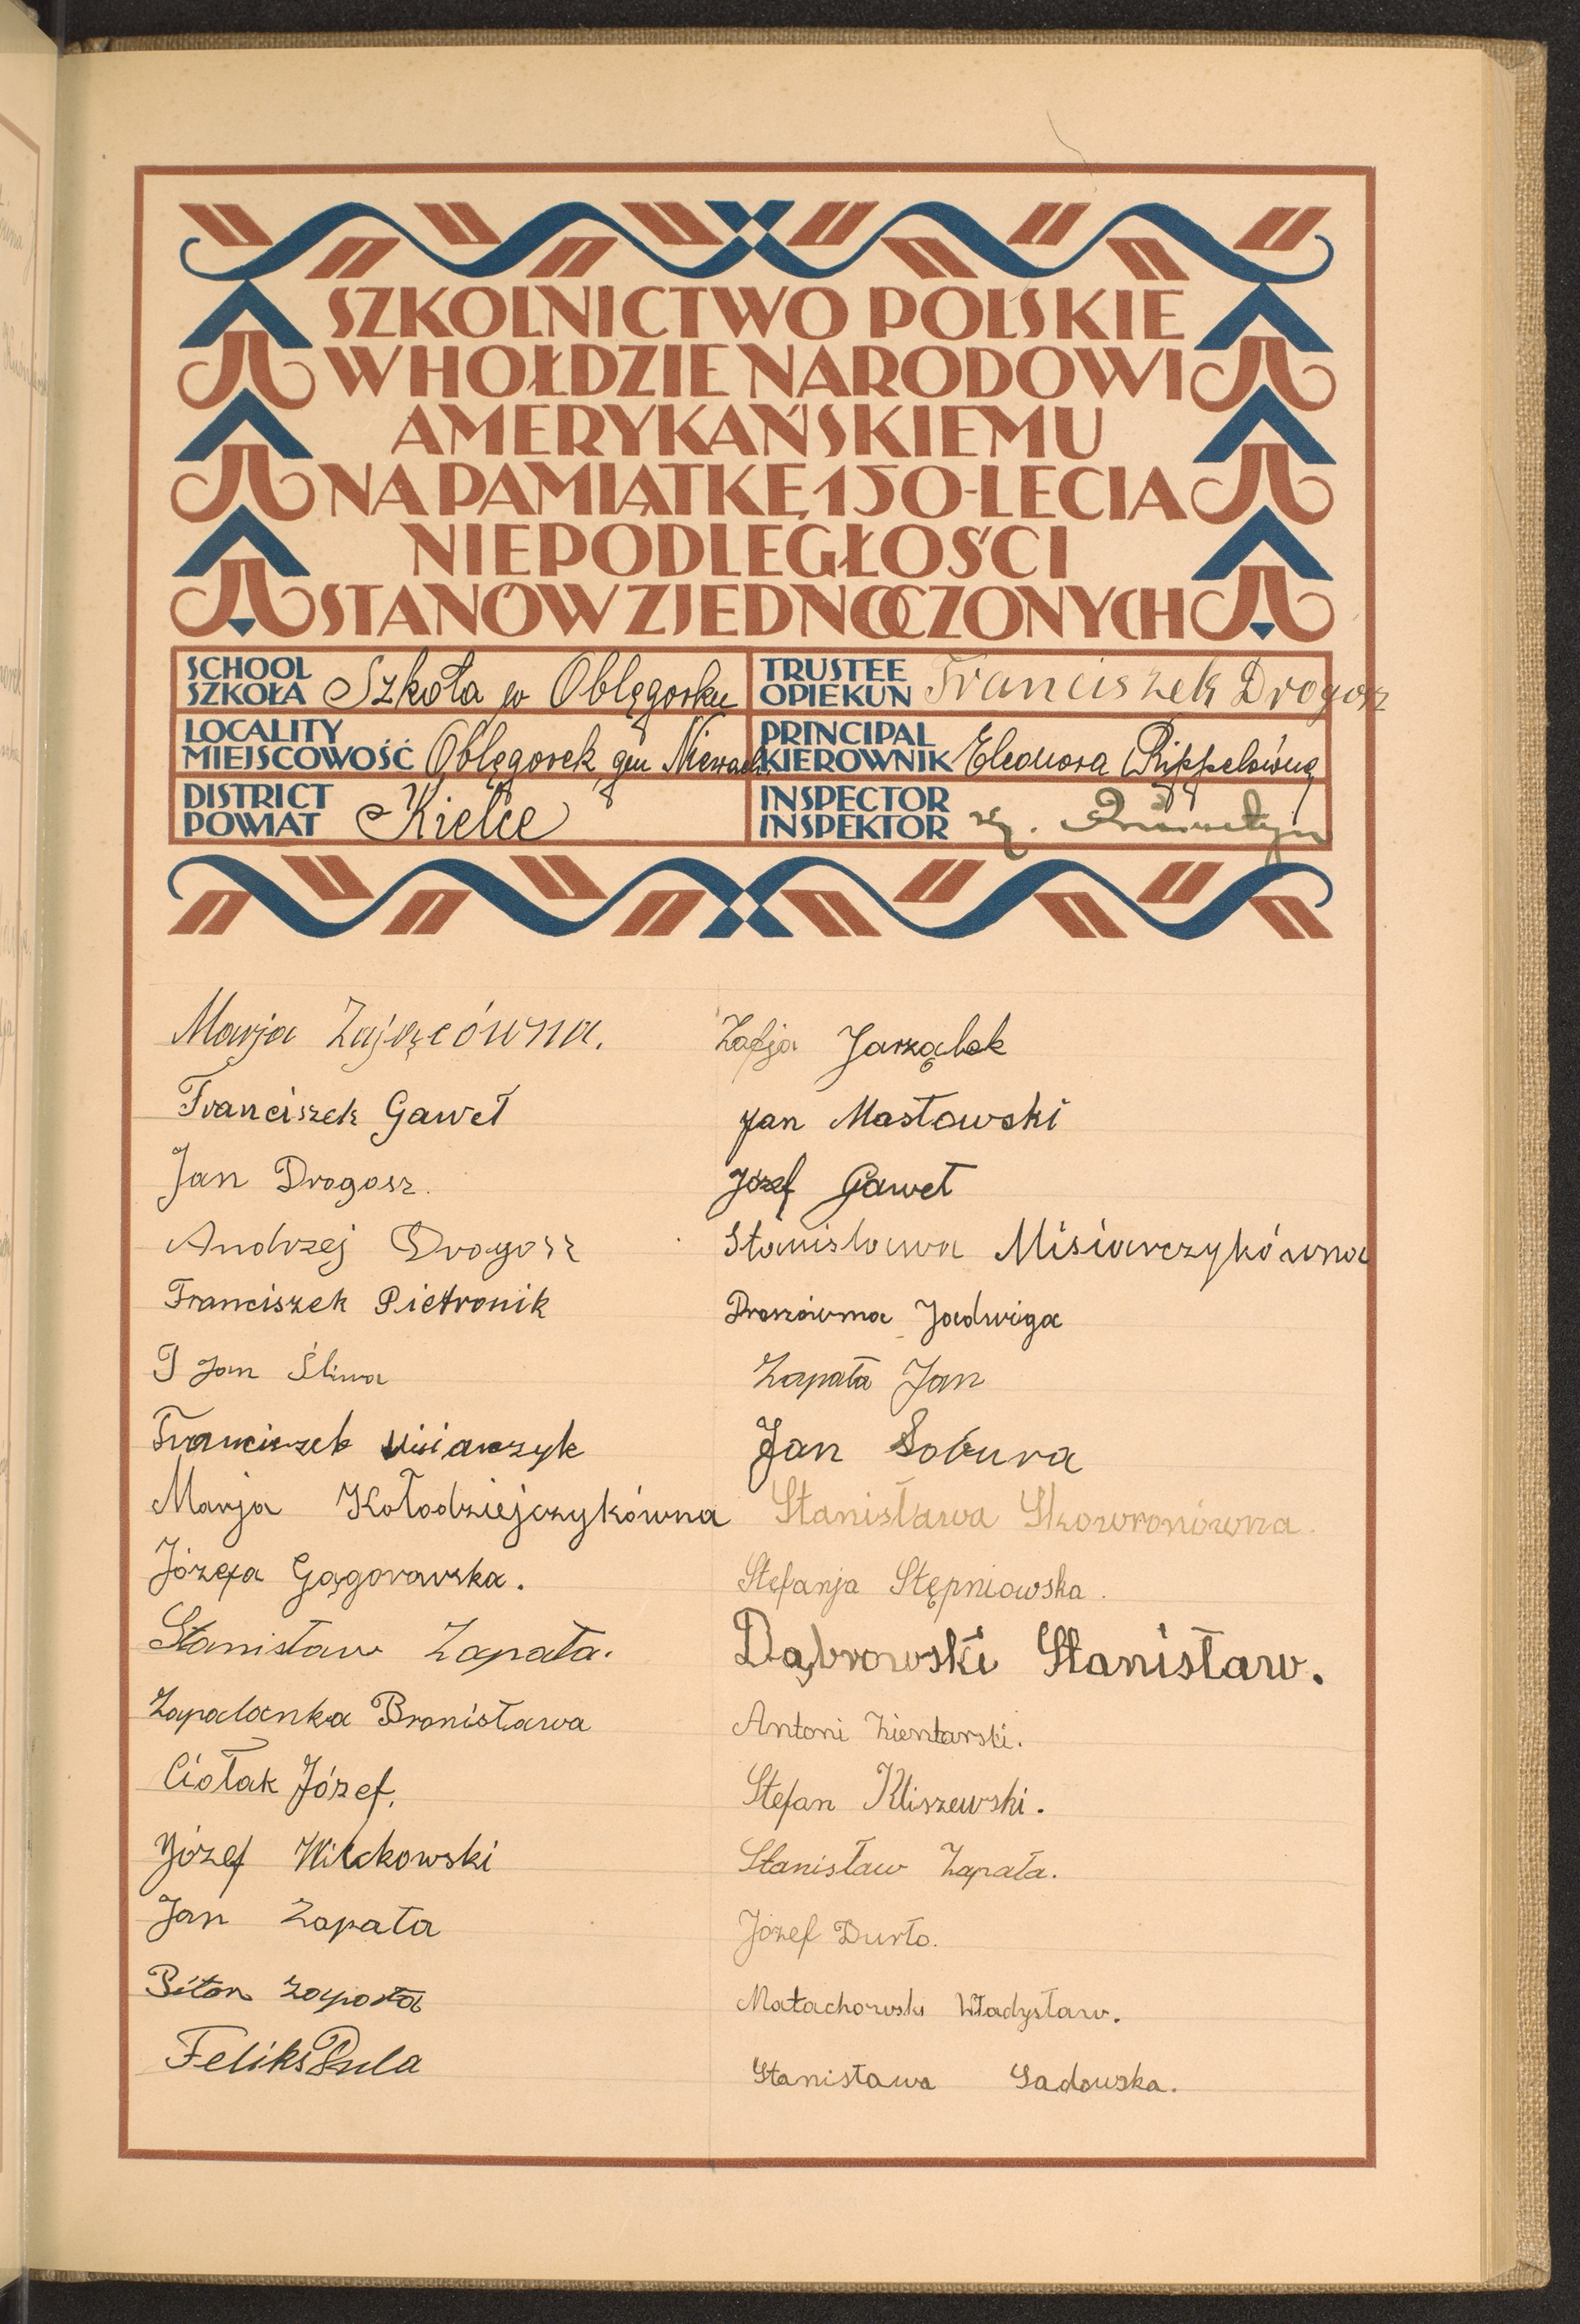 SZKOLNICTWO POLSKIE
W HOŁDZIE NARODOWI
AMERYKAŃSKIEMU
NA PAMIĄTKĘ 150-LECIA
NIEPODLEGŁOŚCI
STANÓW ZJEDNOCZONYCH
SCHOOL
SZKOŁA Szkoła w Oblęgorku
TRUSTEE
OPIEKUN Franciszek Drogosz
LOCALITY
MIEJSCOWOŚĆ Oblęgorek, gm
PRINCIPAL
KIEROWNIK Eleonora Rippelówną
DISTRICT
POWIAT Kielce
INSPECTOR
INSPEKTOR
Marja Zajęcówna.
Franciszek Gaweł
Jan Drogosz.
Andrzej Drogosz
Franciszek Pietronik
J Jan Śliwa
Franciszek Misiarczyk
Marja Kołodziejczykówna
Józefa Gągorowska.
Stanisław Zapała.
Zapalanka Bronisława
Ciołak Józef.
Józef Wilckowski
Jan Zapała
Zapała
Feliks Pula
Zofja Jarząbek
Jan Masłowski
Józef Gaweł
Stanisława Misiarczykówna
Jadwiga
Zapała Jan
Jan Sobura
Stanisława Skowronówna.
Stefanja Stępniowska.
Dąbrowski Stanisław.
Antoni Zientarski.
Stefan Kliszewski.
Stanisław Zapała.
Józef Durło.
Małachowski Władysław.
Stanisława Sadowska.